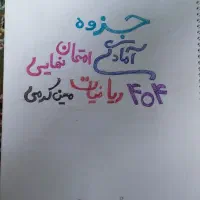 جزوه
آمادگی امتحان نهایی
ریاضیات ۴۰۴
مبین کرمی